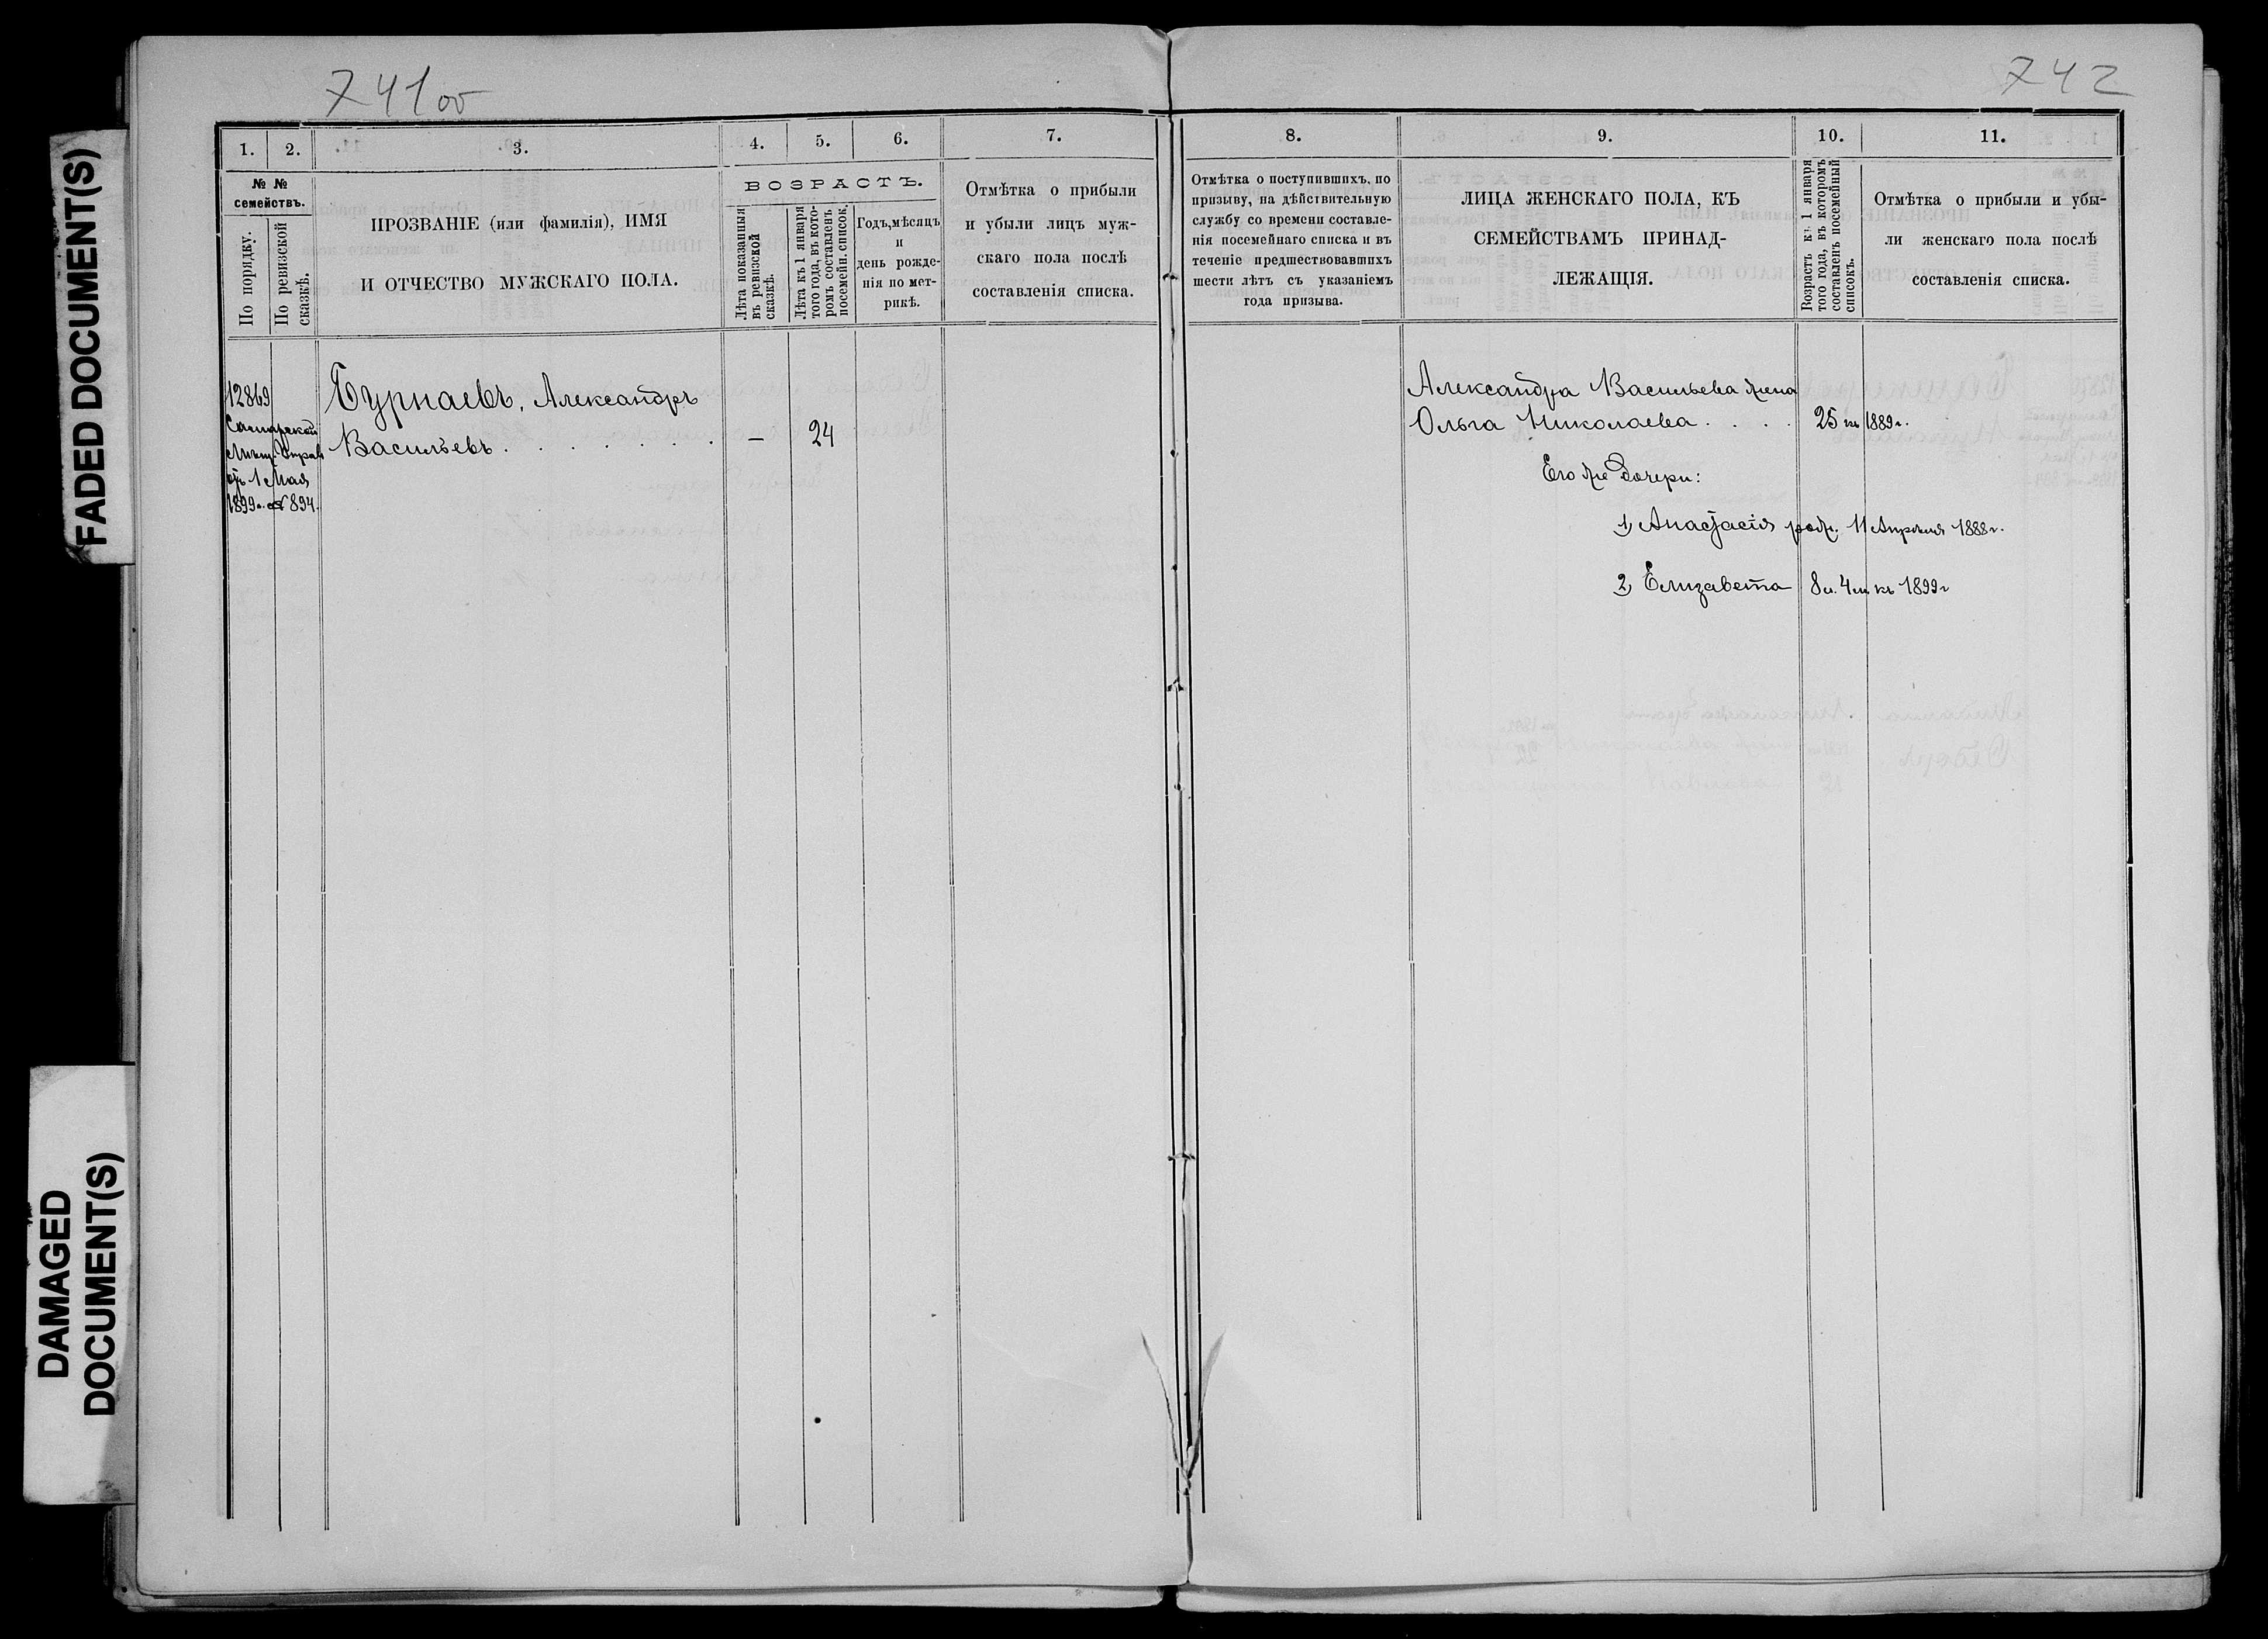 741 об
742
FADED DOCUMENT(S)
DAMAGED
DOCUMENT(S)
1.
2.
3.
4.
5.
6.
7.
№ №
семействъ.
По порядку.
По ревизской
сказкѣ.
ПРОЗВАНІЕ (или фамилія), ИМЯ
И ОТЧЕСТВО МУЖСКАГО ПОЛА.
ВОЗРАСТЪ.
Лѣта показанныя
въ ревизской
сказкѣ.
Лѣта къ 1 января
того года, въ кото-
ромъ составленъ
посемейн. список.
Годъ, мѣсяцъ
и
день рожде-
нія по мет-
рикѣ.
Отмѣтка о прибыли
и убыли лицъ муж-
скаго пола послѣ
составленія списка.
12869
Самарской
Мѣщ. Управ
отъ 1 Мая
1899 г. № 894.
Бурнаевъ, Александръ
Васильевъ . . . . . . . — 24
8.
9.
10.
11.
Отмѣтка о поступившихъ, по
призыву, на дѣйствительную
службу со времени составле-
нія посемейнаго списка и въ
теченіе предшествовавшихъ
шести лѣтъ съ указаніемъ
года призыва.
ЛИЦА ЖЕНСКАГО ПОЛА, КЪ
СЕМЕЙСТВАМЪ ПРИНАД-
ЛЕЖАЩІЯ.
Возрастъ къ 1 января
того года, въ которомъ
составленъ посемейный
списокъ.
Отмѣтка о прибыли и убы-
ли женскаго пола послѣ
составленія списка.
Александра Васильева жена
Ольга Николаева . . . . 25 къ 1889 г.
Его же дочери:
1) Анастасія родж. 11 Апрѣля 1888 г.
2) Елизавета 8 л. 4 м. къ 1899 г